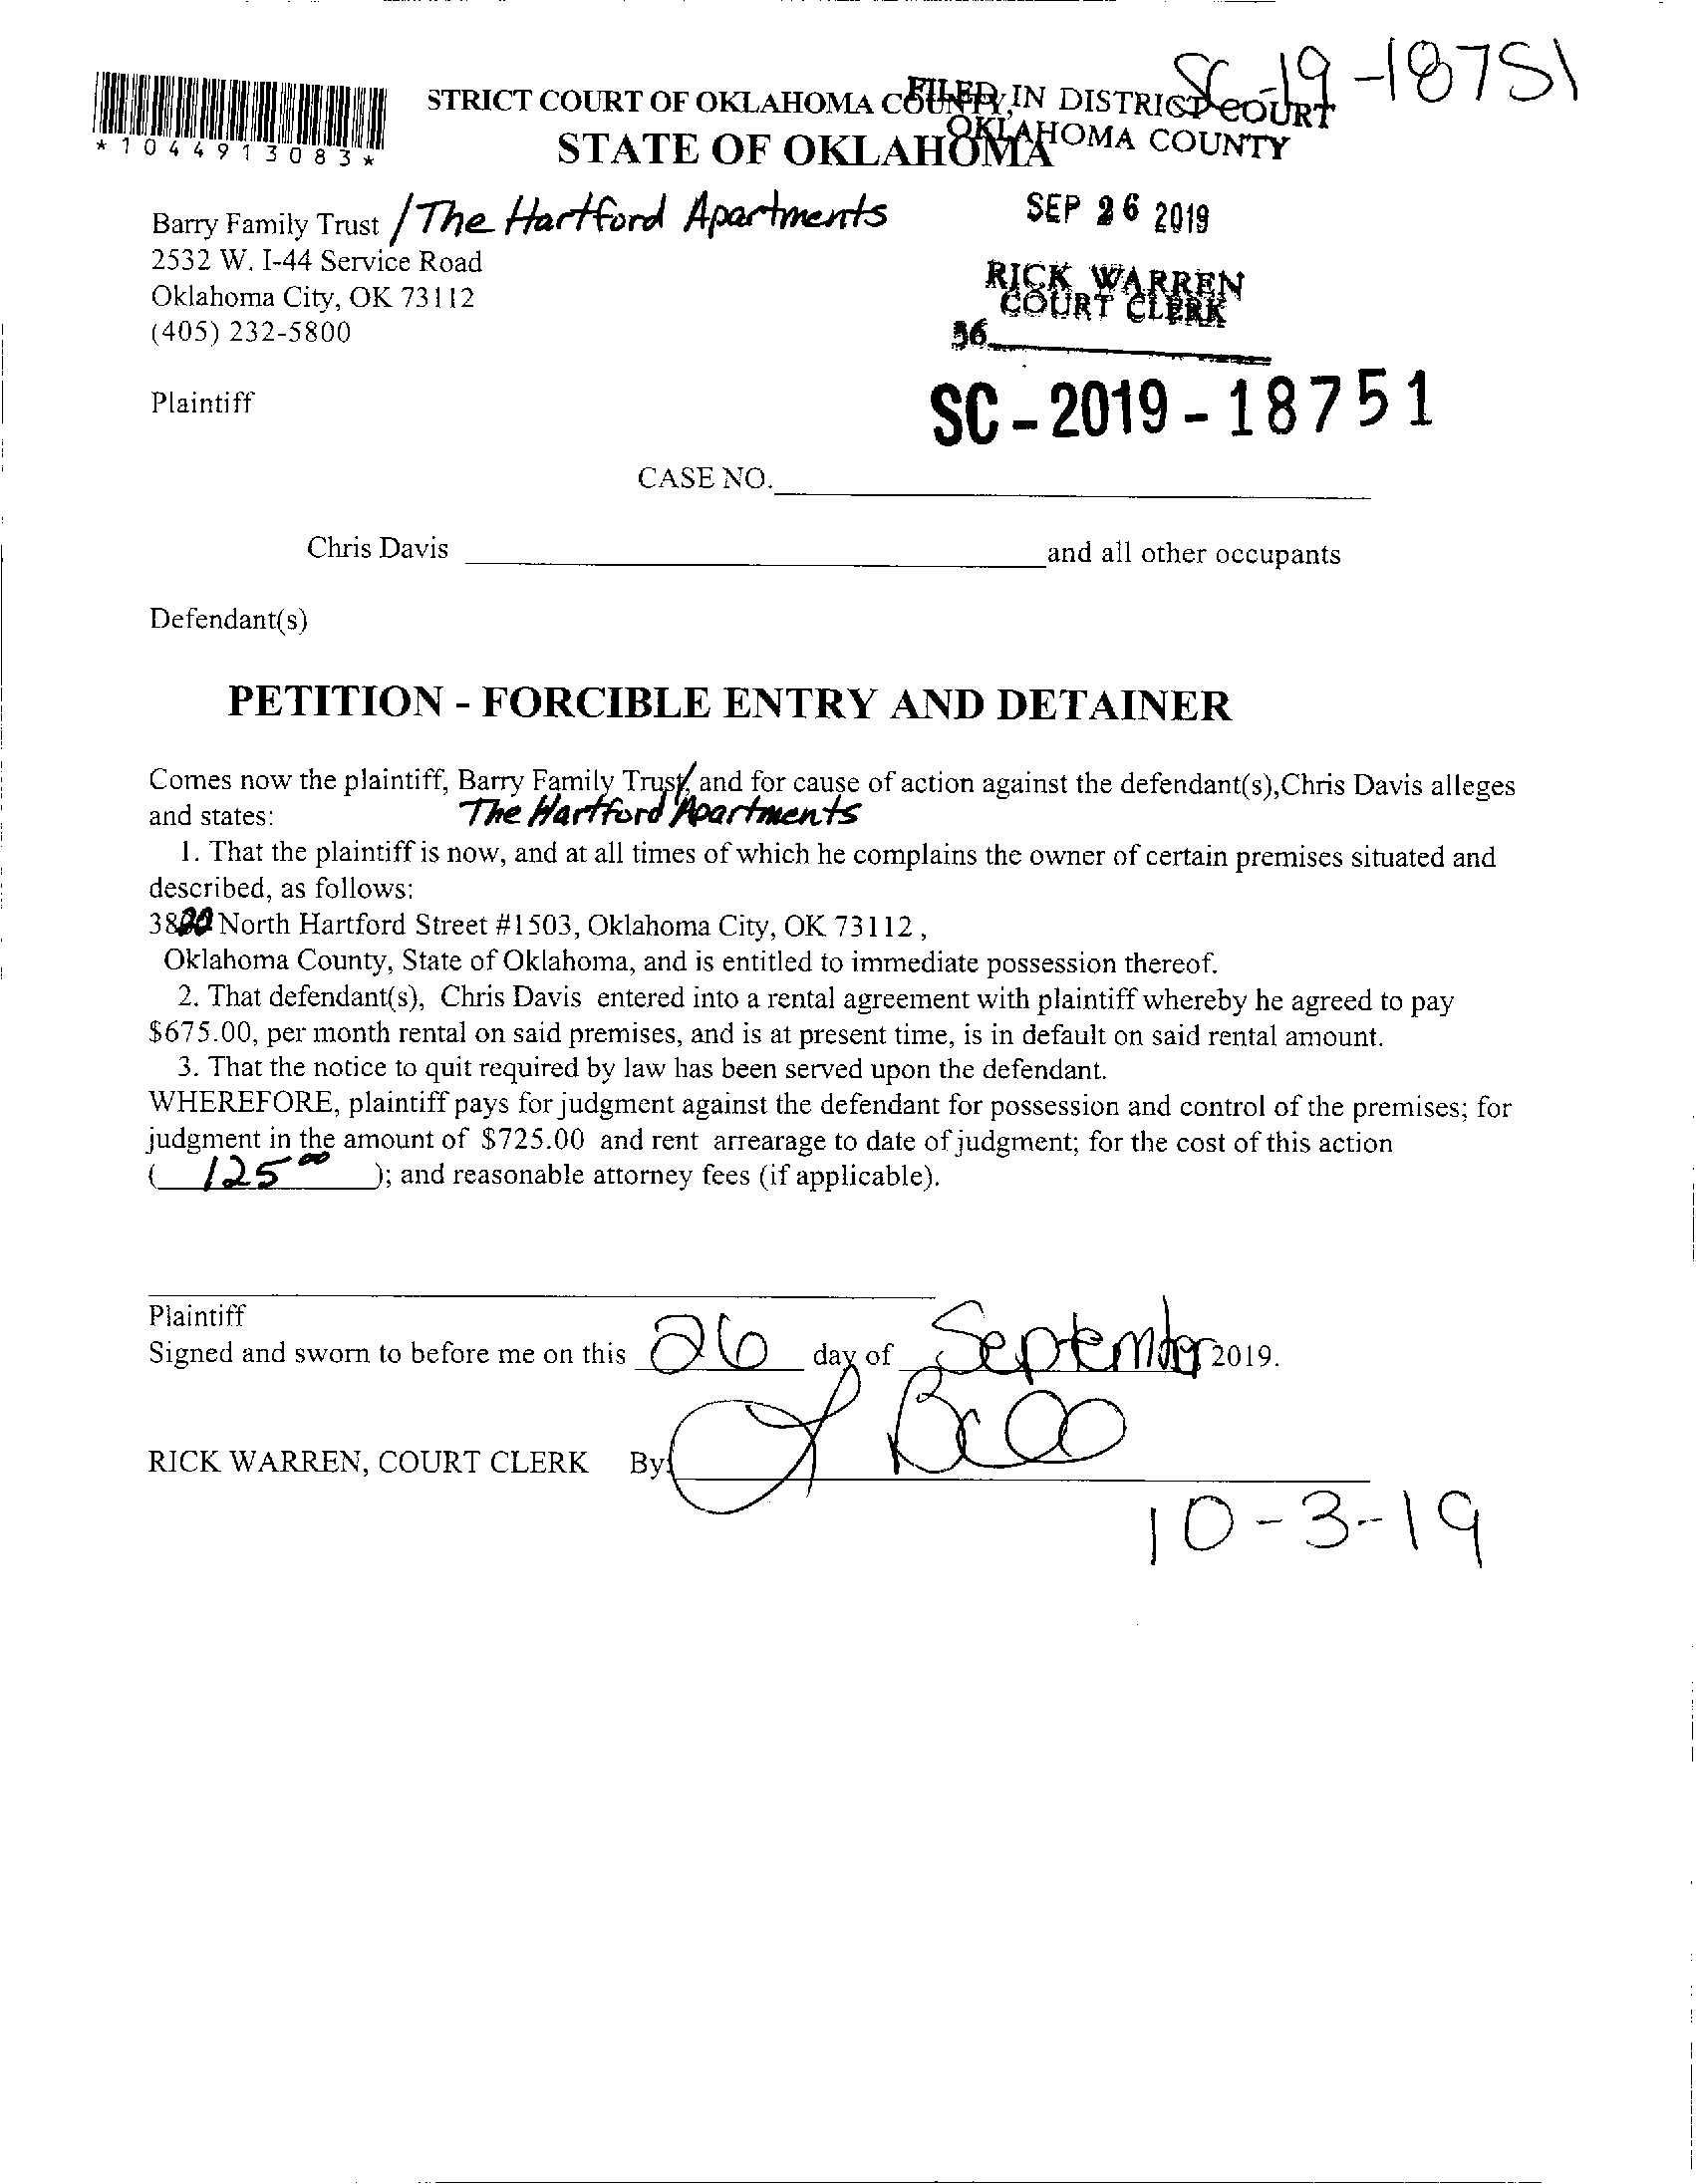 SC-19-18751
STRICT COURT OF OKLAHOMA COUNTY,
FILED IN DISTRICT COURT
STATE OF OKLAHOMA
OKLAHOMA COUNTY
*1044913083*
Barry Family Trust / The Hartford Apartments
SEP 26 2019
2532 W. I-44 Service Road
Oklahoma City, OK 73112
RICK WARREN
COURT CLERK
(405) 232-5800
36
Plaintiff
SC-2019-18751
CASE NO.
Chris Davis and all other occupants
Defendant(s)
PETITION - FORCIBLE ENTRY AND DETAINER
Comes now the plaintiff, Barry Family Trust/, and for cause of action against the defendant(s),Chris Davis alleges
and states: The Hartford Apartments
1. That the plaintiff is now, and at all times of which he complains the owner of certain premises situated and
described, as follows:
3800 North Hartford Street #1503, Oklahoma City, OK 73112 ,
Oklahoma County, State of Oklahoma, and is entitled to immediate possession thereof.
2. That defendant(s), Chris Davis entered into a rental agreement with plaintiff whereby he agreed to pay
$675.00, per month rental on said premises, and is at present time, is in default on said rental amount.
3. That the notice to quit required by law has been served upon the defendant.
WHEREFORE, plaintiff pays for judgment against the defendant for possession and control of the premises; for
judgment in the amount of $725.00 and rent arrearage to date of judgment; for the cost of this action
( 125 00 ); and reasonable attorney fees (if applicable).
Plaintiff
Signed and sworn to before me on this 26 day of September 2019.
RICK WARREN, COURT CLERK By:
10-3-19